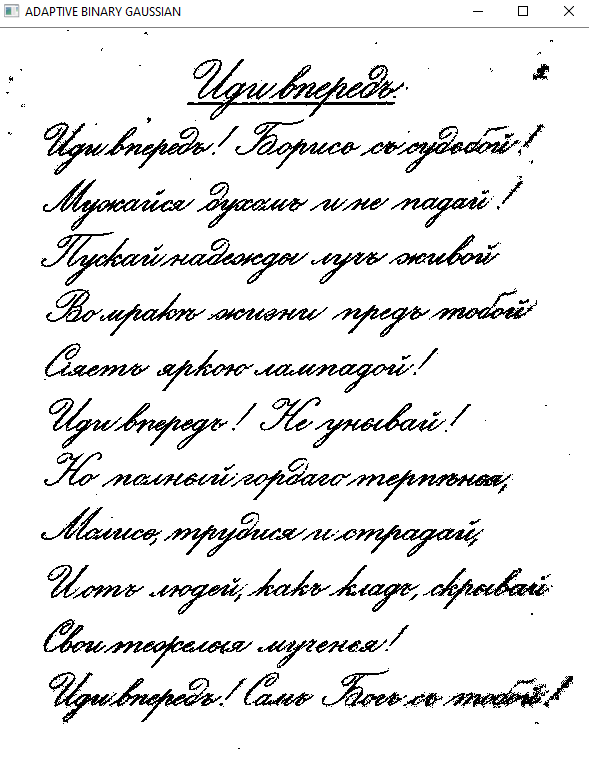 ADAPTIVE BINARY GAUSSIAN
Иди впередъ.
Иди впередъ! Борись съ судьбой!
Мужайся духомъ и не падай!
Пускай надежды лучъ живой
Во мракѣ жизни предъ тобой
Сіяетъ яркою лампадой!
Иди впередъ! Не унывай!
Но полный гордаго терпѣнья,
Молись, трудися и страдай,
И отъ людей, какъ кладъ, скрывай
Свои тяжелыя мученья!
Иди впередъ! Самъ Богъ съ тобой!